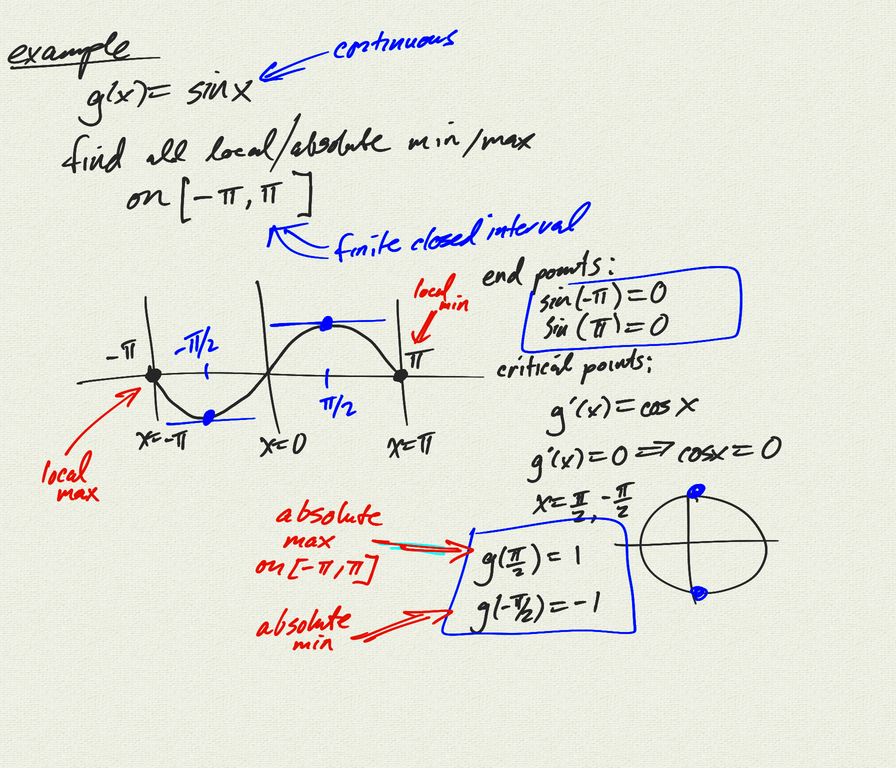 example
continuous
g(x) = sin x
find all local/absolute min/max
on [-π, π]
finite closed interval
end points:
sin(-π) = 0
sin(π) = 0
local
min
-π
-π/2
π
π/2
x=-π
x=0
x=π
local
max
critical points:
g'(x) = cos x
g'(x) = 0 ⇒ cos x = 0
x = π/2, -π/2
absolute
max
on [-π, π]
g(π/2) = 1
g(-π/2) = -1
absolute
min